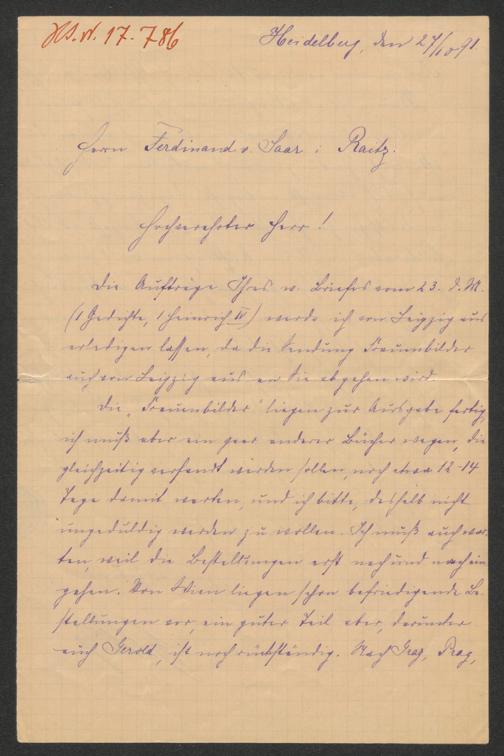 HS.N. 17.786
Heidelberg, den 27/10 91.
Herrn Ferdinand v. Saar i Raitz.
Hochverehrter Herr!
Die Aufträge Ihres w. Briefes vom 23. d. M.
(1 Gedichte, 1 Heinrich IV) werde ich von Leipzig aus
erledigen lassen, da die Sendung Frauenbilder
auch von Leipzig aus an Sie abgehen wird.
Die „Frauenbilder" liegen zur Ausgabe fertig,
ich muß aber ein paar anderer Bücher wegen, die
gleichzeitig versandt werden sollen, noch etwa 12-14
Tage damit warten, und ich bitte, deshalb nicht
ungeduldig werden zu wollen. Ich muß auch war-
ten, weil die Bestellungen erst nach und nach ein
gehen. Von Wien liegen schon befriedigende Be-
stellungen vor, ein guter Teil aber, darunter
auch Gerold, ist noch rückständig. Nach Graz, Prag,